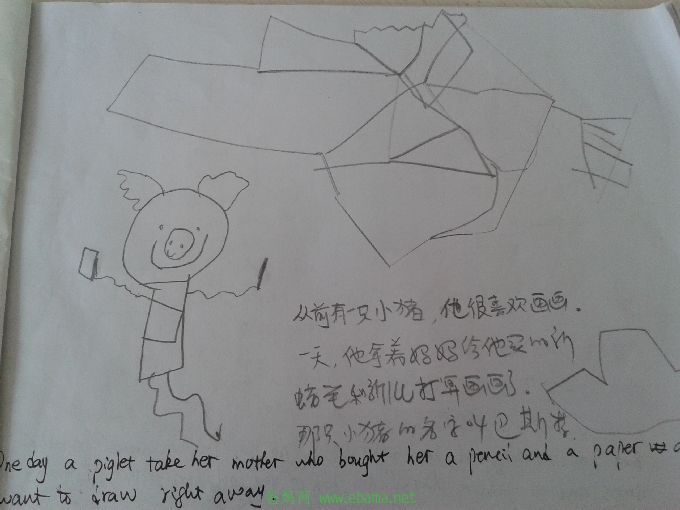 从前有一只小猪，他很喜欢画画。
一天，他拿着妈妈给他买的新
蜡笔和新 打算画画了。
那只小猪的名字叫巴斯拉
One day a piglet take her mother who bought her a pencil and a paper a
want to draw right away
www.ebama.net